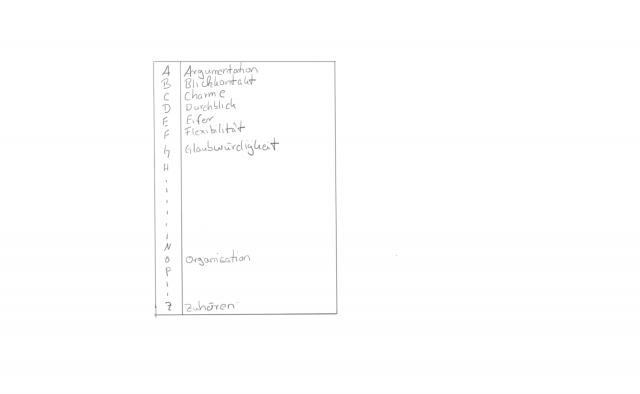 A Argumentation
B Blickkontakt
C Charme
D Durchblick
E Eifer
F Flexibilität
G Glaubwürdigkeit
H
N
O Organisation
P
Z Zuhören